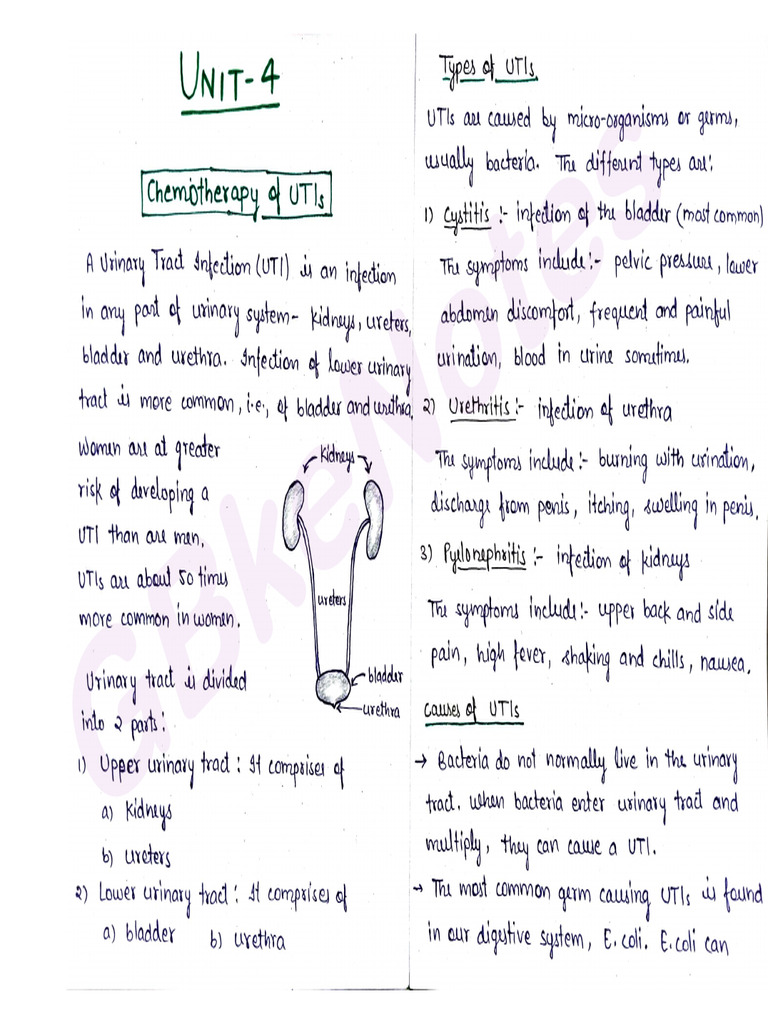 UNIT-4
Chemotherapy of UTIs
A Urinary Tract Infection (UTI) is an infection
in any part of urinary system- kidneys, ureters,
bladder and urethra. Infection of lower urinary
tract is more common, i.e., of bladder and urethra.
Women are at greater
risk of developing a
UTI than are men.
UTIs are about 50 times
more common in women.
kidneys
ureters
bladder
urethra
Urinary tract is divided
into 2 parts:
1) Upper urinary tract: It comprises of
a) kidneys
b) ureters
2) Lower urinary tract: It comprises of
a) bladder b) urethra
Types of UTIs
UTIs are caused by micro-organisms or germs,
usually bacteria. The different types are:
1) Cystitis :- infection of the bladder (most common)
The symptoms include:- pelvic pressure, lower
abdomen discomfort, frequent and painful
urination, blood in urine sometimes.
2) Urethritis:- infection of urethra
The symptoms include:- burning with urination,
discharge from penis, itching, swelling in penis.
3) Pyelonephritis :- infection of kidneys
The symptoms include:- upper back and side
pain, high fever, shaking and chills, nausea.
Causes of UTIs
→ Bacteria do not normally live in the urinary
tract. When bacteria enter urinary tract and
multiply, they can cause a UTI.
→ The most common germ causing UTIs is found
in our digestive system, E.coli. E.coli can
GBkeNotes